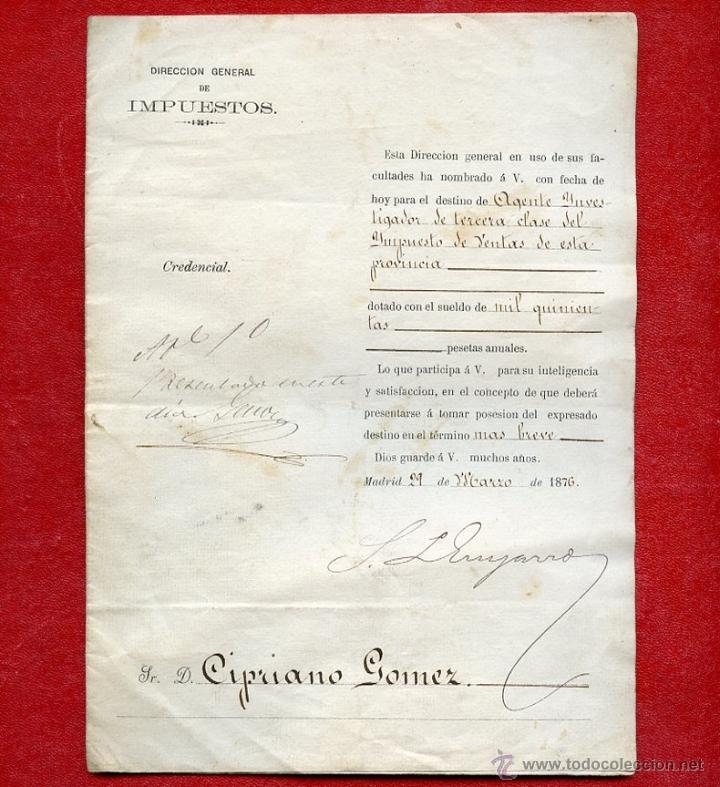 DIRECCION GENERAL
DE
IMPUESTOS.
Esta Direccion general en uso de sus fa-
cultades ha nombrado á V. con fecha de
hoy para el destino de Agente Ynves-
tigador de tercera clase del
Ympuesto de Ventas de esta
provincia
Credencial.
dotado con el sueldo de mil quinien-
tas
pesetas anuales.
Lo que participa á V. para su inteligencia
y satisfaccion, en el concepto de que deberá
presentarse á tomar posesion del expresado
destino en el término mas breve
Dios guarde á V. muchos años.
Madrid 29 de Marzo de 1876.
Presentado en este
dia
Sr. D. Cipriano Gomez.
www.todocoleccion.net